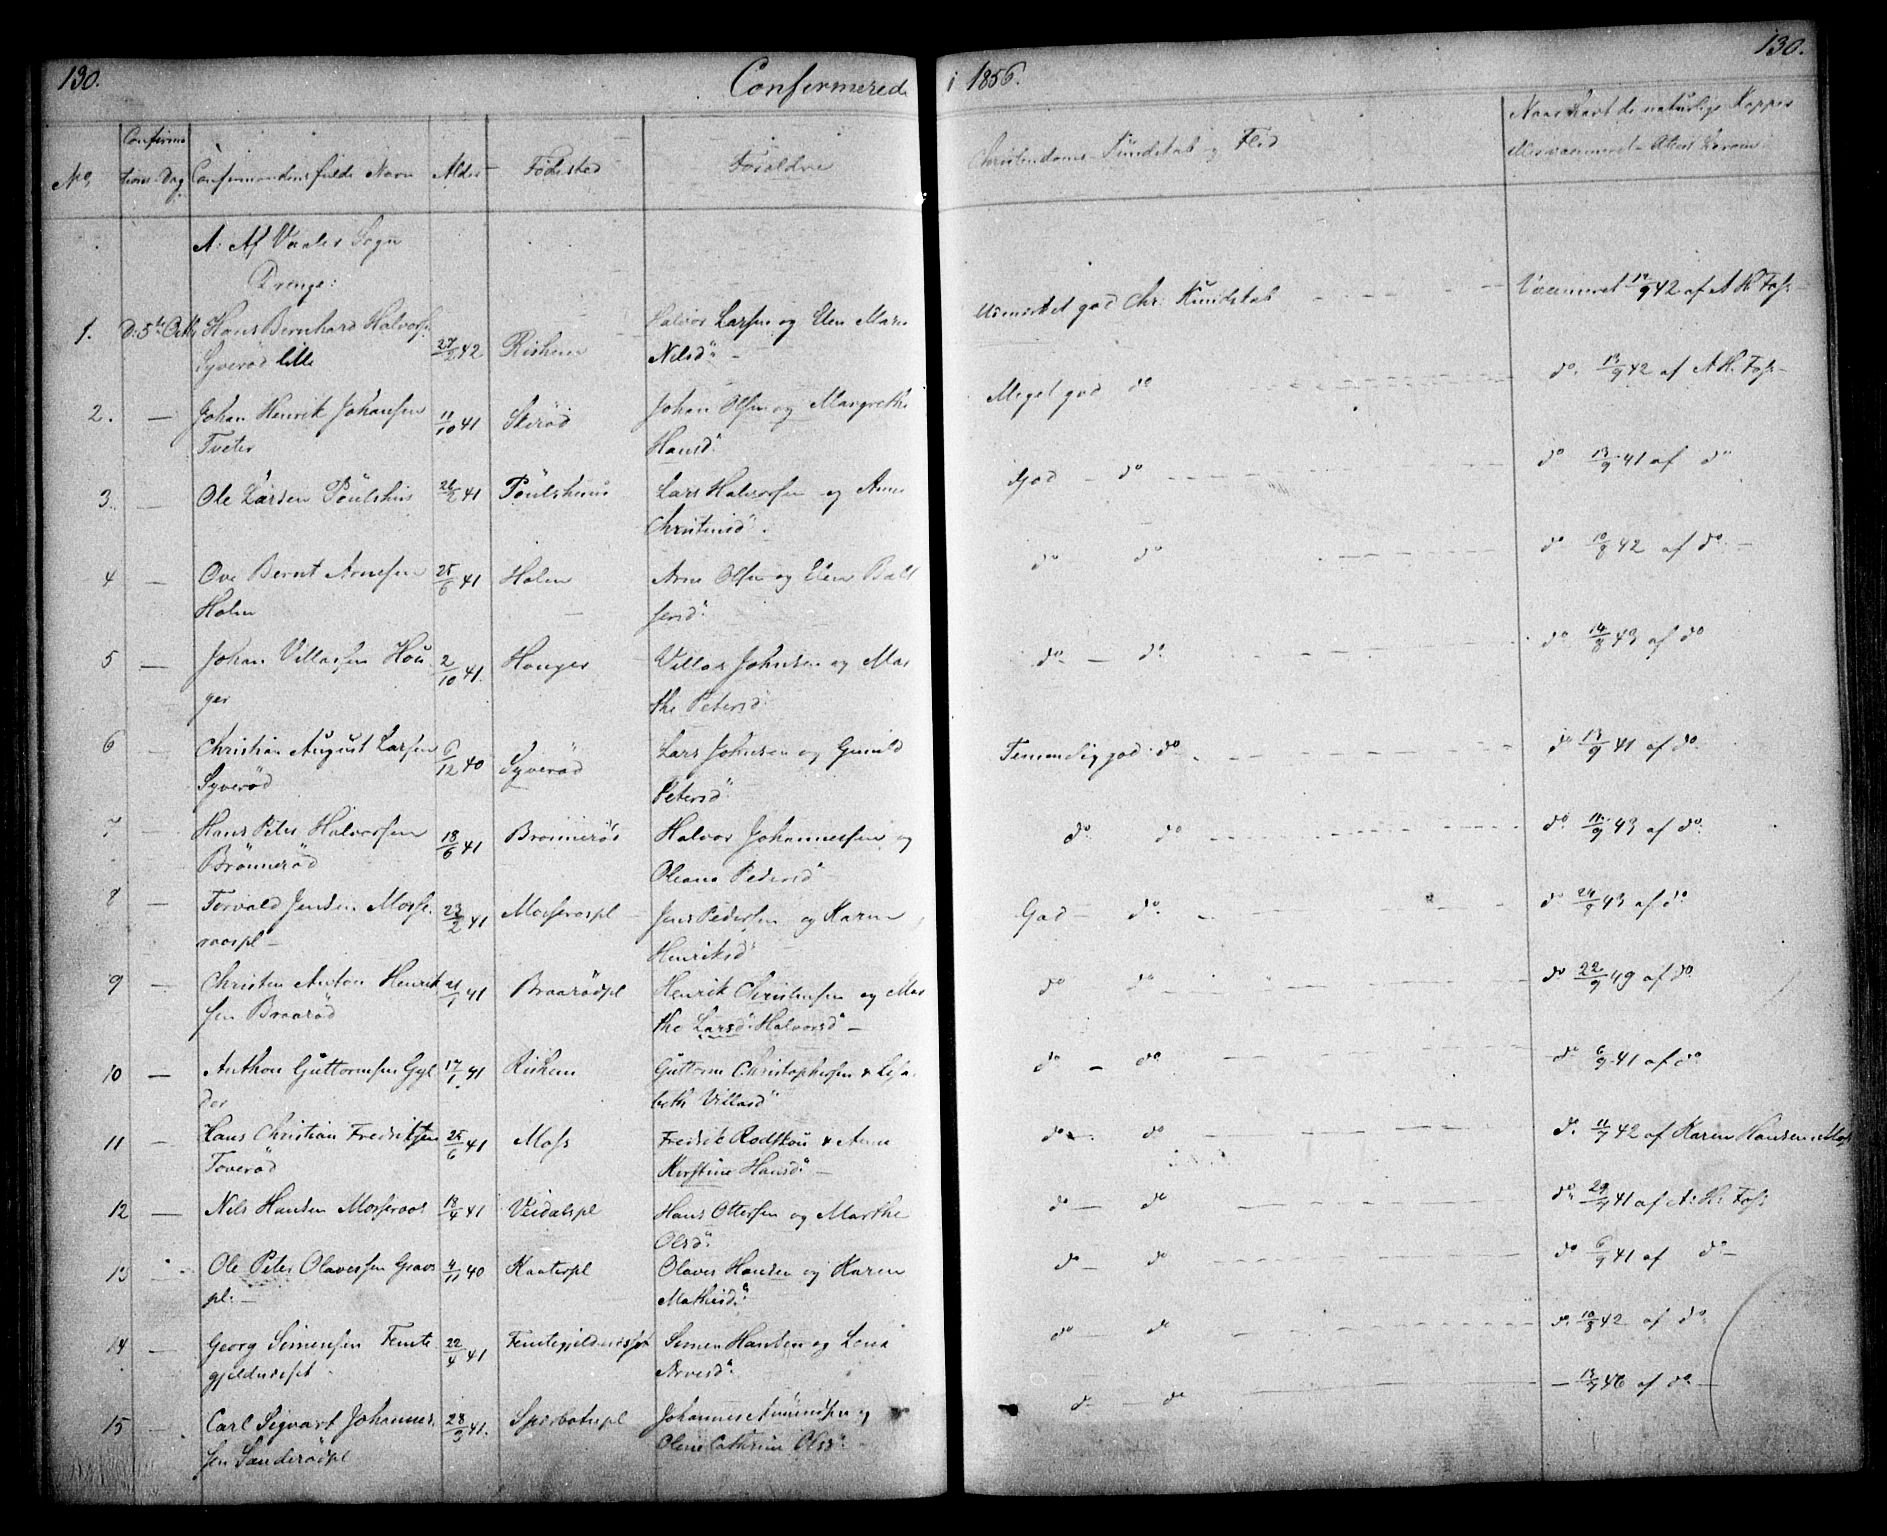 130.
Confirmerede
i 1856.
130.
No.
Confirma
tions-Dag
Confirmandens fulde Navn
Alder
Fødested
Forældre
Christendoms-Kundskab og Flid
Naar havt de naturlige Kopper
eller vaccineret
A: Af Vaaler Sogn
Drenge:
1. D: 5te Octb Hans Bernhard Halvors. 27/2 42 Riskem Halvor Larsen og Elen Marie Udmærket god Chr: Kundskab Vaccineret 12/9 42 af A. H. Foss
Syverød lille Nilsd.
2. — Johan Henrik Johansen 11/10 41 Skerød Johan Olsen og Margrethe Meget god do do. 13/9 42 af A. H. Foss
Tveter Hansd.
3. — Ole Larsen Poulshus 26/2 41 Poulshuus Lars Halvorsen og Anne God — do do 13/9 41 af do
Christensd.
4 — Ove Bernt Arnesen 25/6 41 Holm Arne Olsen og Elen Balt do do do 10/8 42 af do.
Holm sersd.
5 — Johan Villassen Hou 2/10 41. Houger Villas Johnsen og Mar do — do do 14/8 43 af do
ger the Petersd.
6 — Christian August Larsen 6/12 40 Syverød Lars Johnsen og Gunild Temmelig god do do 13/9 41 af do.
Syverød Petersd.
7 — Hans Peter Halvorsen 18/6 41 Brønnerød Halvor Johannessen og do do do. 11/9 43 af do.
Brønnerød Oleana Pedersd.
8 — Torvald Jensen Mosse 23/2 41 Mosserospl Jens Pedersen og Karen God — do. do 24/8 43 af do.
raaspl — Henriksd.
9 — Christen Anton Henrik 21/1 41 Braarødpl Henrik Christensen og Mar do do do 22/9 49 af do
sen Braarød the Larsd. Halvorsd. —
10 — Anthon Guttormsen Gyl 17/1 41 Riskem Guttorm Christophersen & Lisa do — do do. 6/9 41 af do.
der beth Villasd.
11 — Hans Christian Fredriksen 25/6 41 Moss Fredrik Rodskou & Anne do do do. 11/7 42 af Karen Hansen i Moss
Toverød Kirstine Hansd. —
12 — Nils Hansen Mosseraas 13/4 41 Veidalspl Hans Ottersen og Marthe do — do do. 29/9 41 af A: H: Foss
Olsd.
13 — Ole Peter Olavessen Graves 4/11 40 Kaaterpl Olaves Hansen og Karen do — do do 6/9 41 af do —
pl. — Mathisd.
14 — Georg Simensen Femte 22/4 41 Femtegjeldnesset Simen Hansen og Lena do — do do. 10/8 42 af do.
gjeldneset Arvesd.
15 — Carl Sigvart Johannes 28/3 41. Spirbotnpl Johannes Amundsen og do — do — 13/7 46 af do. —
sen Sanderødpl Olene Cathrine Olsd.